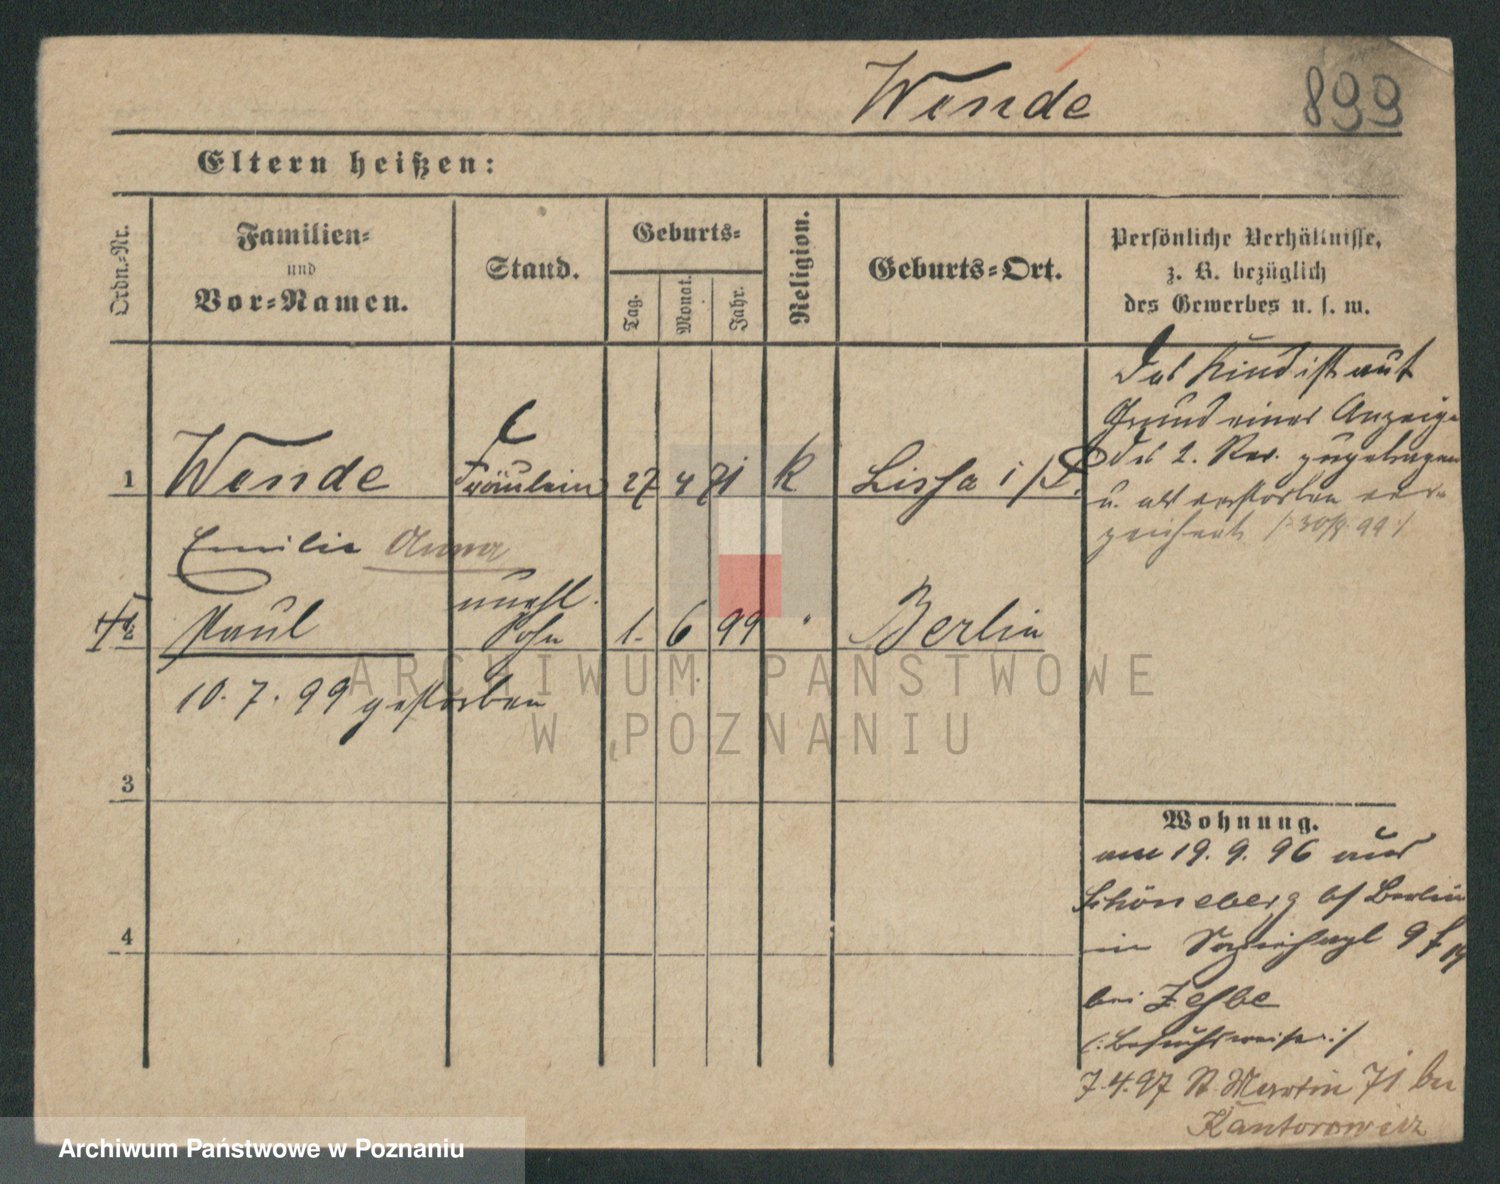 Wende 899
Eltern heißen:
Ordn.-Nr.
Familien-
und
Vor-Namen.
Stand.
Geburts-
Tag.
Monat.
Jahr.
Religion.
Geburts-Ort.
Persönliche Verhältnisse,
z. B. bezüglich
des Gewerbes u. s. w.
1 Wende Fräulein 27 4 71 K Lissa i/P.
Emilie Anna
unehl.
Paul Sohn 1. 6 99 " Berlin
10. 7. 99 gestorben
3
4
Das Kind ist auf
Grund einer Anzeige
des 2. Rev. zugetragen
u. als verstorben ver-
zeichnet /:30/8.99:/
Wohnung.
am 19. 9. 96 aus
Schöneberg b/ Berlin
in 9
bei Zehbe
/:Besuchsweise:/
7.4.97 St. Martin 71 bei
Kantorowicz
ARCHIWUM PAŃSTWOWE
W POZNANIU
Archiwum Państwowe w Poznaniu